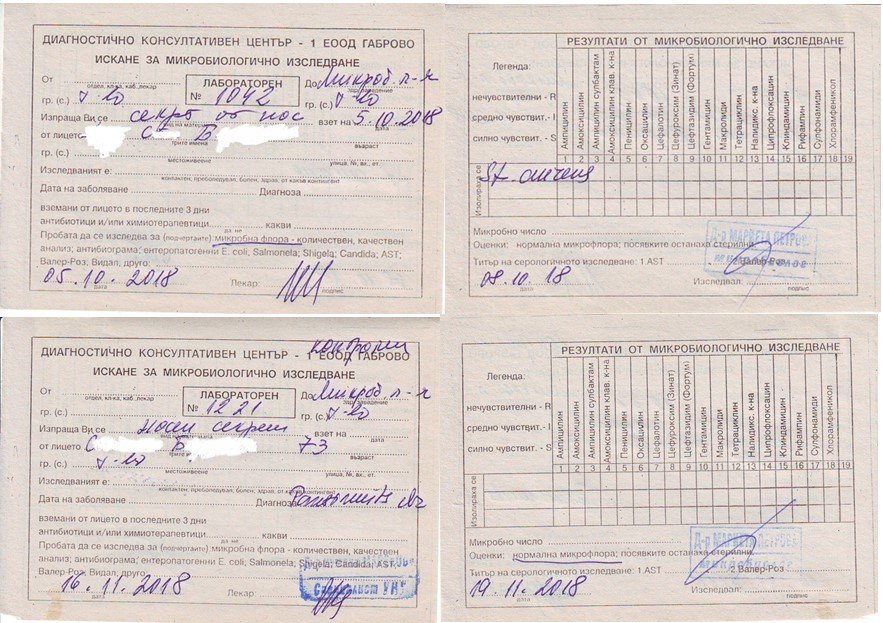 ДИАГНОСТИЧНО КОНСУЛТАТИВЕН ЦЕНТЪР - 1 ЕООД ГАБРОВО
ИСКАНЕ ЗА МИКРОБИОЛОГИЧНО ИЗСЛЕДВАНЕ
От До Микроб. л-я
отдел, кл-ка, каб., лекар
ЛАБОРАТОРЕН
№ 1042
гр. (с.) Г-во гр. (с.) Г-во
Изпраща Ви се секрет от нос взет на 5.10.2018
от лицето С Б
трите имена възраст
гр. (с.)
местоживеене улица, №, вх., ет.
Изследваният е:
контактен, преболедувал, болен, здрав, от какъв контингент
Дата на заболяване Диагноза
вземани от лицето в последните 3 дни
антибиотици и/или химиотерапевтици. какви
да, не
Пробата да се изследва за (подчертайте) микробна флора - количествен, качествен
анализ; антибиограма; ентеропатогенни E. coli, Salmonela; Shigela; Candida; AST;
Валер-Роз, Видал, друго:
05.10.2018 Лекар:
дата подпис
РЕЗУЛТАТИ ОТ МИКРОБИОЛОГИЧНО ИЗСЛЕДВАНЕ
Легенда:
нечувствителни - R
средно чувствит. - I
силно чувствит. - S
Ампицилин
Амоксицилин
Ампицилин сулбактам
Амоксицилин клав. к-на
Пеницилин
Оксацилин
Цефалотин
Цефуроксим (Зинат)
Цефтазидим (Фортум)
Гентамицин
Макролиди
Тетрациклин
Налидикс. к-на
Ципрофлоксацин
Клиндамицин
Рифампин
Сулфонамиди
Хлорамфеникол
1 2 3 4 5 6 7 8 9 10 11 12 13 14 15 16 17 18 19
Изолираха се
St. aureus
Микробно число
Оценки: нормална микрофлора; посявките останаха стерилни.
Д-р МАРИЕТА ПЕТРОВА
Титър на серологичното изследване: 1 AST 2 Валер-Роз
08.10.18 Изследвал:
дата подпис
контролен
ДИАГНОСТИЧНО КОНСУЛТАТИВЕН ЦЕНТЪР - 1 ЕООД ГАБРОВО
ИСКАНЕ ЗА МИКРОБИОЛОГИЧНО ИЗСЛЕДВАНЕ
От До Микроб. л-я
отдел, кл-ка, каб., лекар здр. заведение
ЛАБОРАТОРЕН
№ 1221
гр. (с.) гр. (с.) Г-во
Изпраща Ви се носен секрет взет на
от лицето С Б 73
възраст
гр. (с.) Г-во
местоживеене улица, №, вх., ет.
Изследваният е:
контактен, преболедувал, болен, здрав, от какъв контингент
Дата на заболяване Диагноза
вземани от лицето в последните 3 дни
антибиотици и/или химиотерапевтици. какви
да, не
Пробата да се изследва за (подчертайте) микробна флора - количествен, качествен
анализ; антибиограма; ентеропатогенни E. coli, Salmonela; Shigela; Candida; AST;
Валер-Роз, Видал, друго:
16.11.2018 Лекар:
дата
Специалист УНГ
РЕЗУЛТАТИ ОТ МИКРОБИОЛОГИЧНО ИЗСЛЕДВАНЕ
Легенда:
нечувствителни - R
средно чувствит. - I
силно чувствит. - S
Ампицилин
Амоксицилин
Ампицилин сулбактам
Амоксицилин клав. к-на
Пеницилин
Оксацилин
Цефалотин
Цефуроксим (Зинат)
Цефтазидим (Фортум)
Гентамицин
Макролиди
Тетрациклин
Налидикс. к-на
Ципрофлоксацин
Клиндамицин
Рифампин
Сулфонамиди
Хлорамфеникол
1 2 3 4 5 6 7 8 9 10 11 12 13 14 15 16 17 18 19
Изолираха се
Микробно число
Оценки: нормална микрофлора; посявките останаха стерилни.
Д-р МАРИЕТА ПЕТРОВА
Титър на серологичното изследване: 1 AST 2 Валер-Роз
19.11.2018 Изследвал:
дата подпис